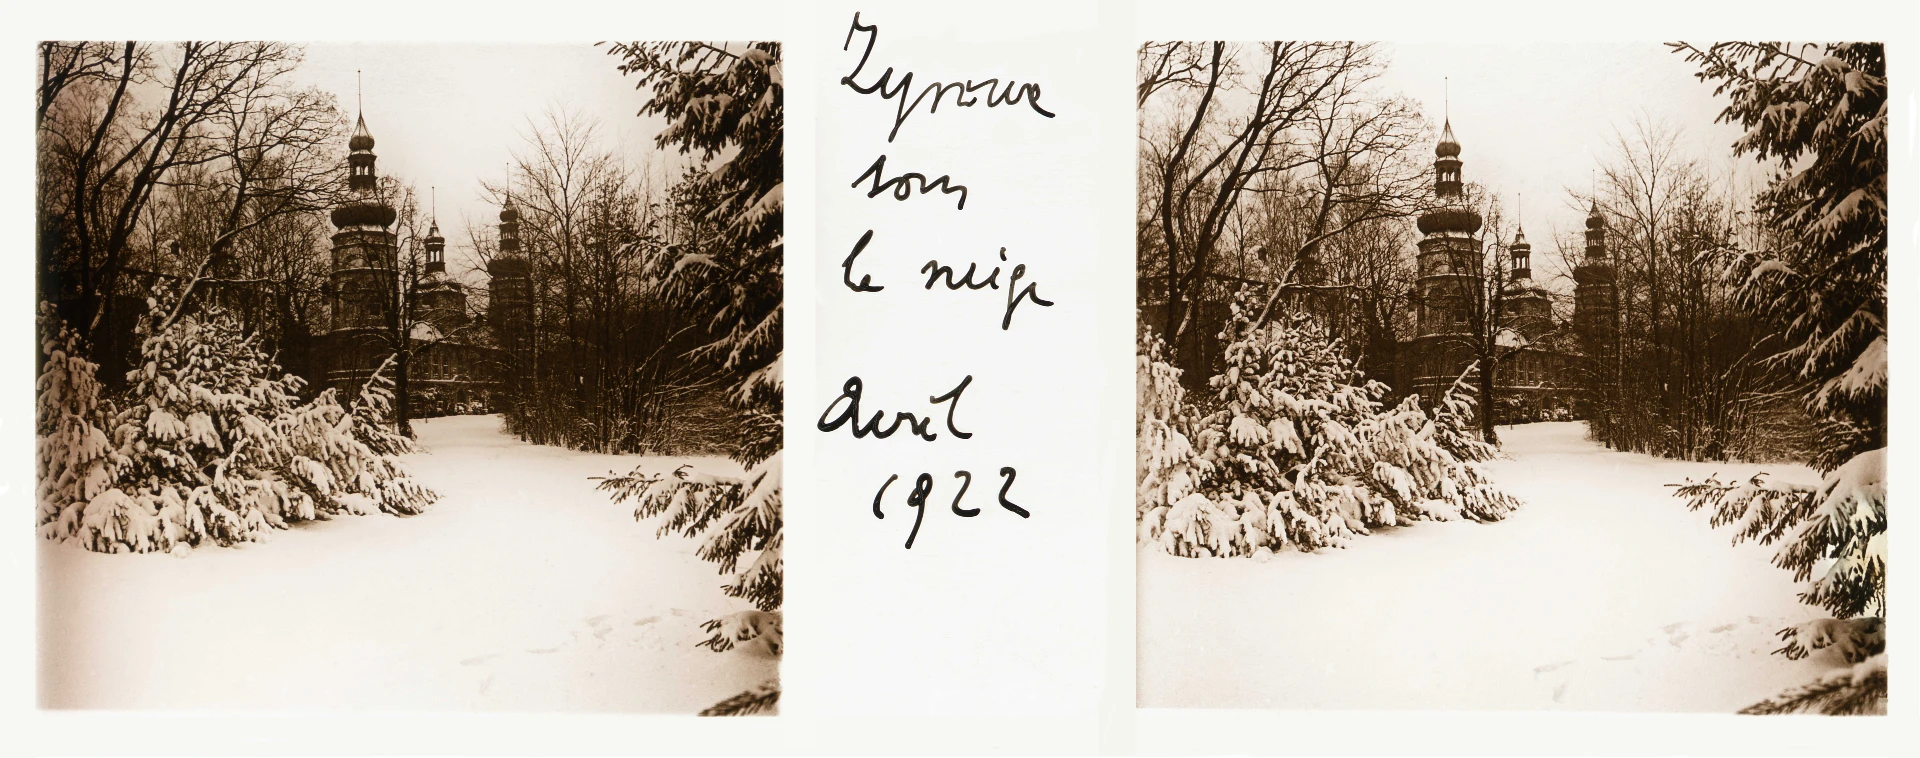 Zyrowa
sous
la neige
Avril
1922